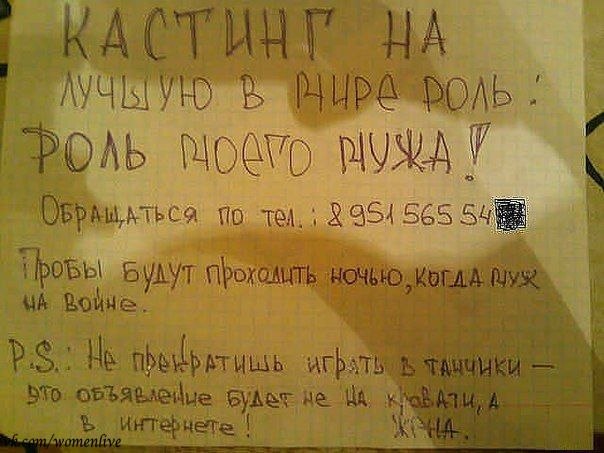 КАСТИНГ НА
ЛУЧШУЮ В МИРЕ РОЛЬ:
РОЛЬ МОЕГО МУЖА!
Обращаться по тел.: 8 951 565 54
Пробы будут проходить ночью, когда муж
на войне.
P.S.: Не прекратишь играть в танчики –
это объявление будет не на кровати, а
в интернете! Жена.
vk.com/womenlive